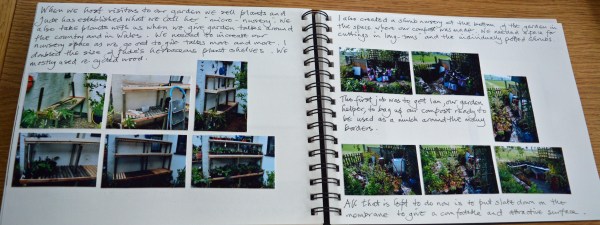 When we host visitors to our garden we sell plants and
I use has established what we call her "micro-nursery". We
also take plants with us when we give garden talks around
the country and in Wales. We needed to increase our
nursery space as we go out to give talks more and more. I
doubled the size of Jude's herbaceous plant shelves. We
mostly used re-cycled wood.
I also created a shrub nursery at the bottom of the garden in
the space where our compost was made. We needed space for
cuttings in long toms and the individually potted shrubs
The first job was to get Ian, our garden
helper, to bag up our compost ready to
be used as a mulch around the
borders.
All that is left to do now is to put slate down on the
membrane to give a comfortable and attractive surface.